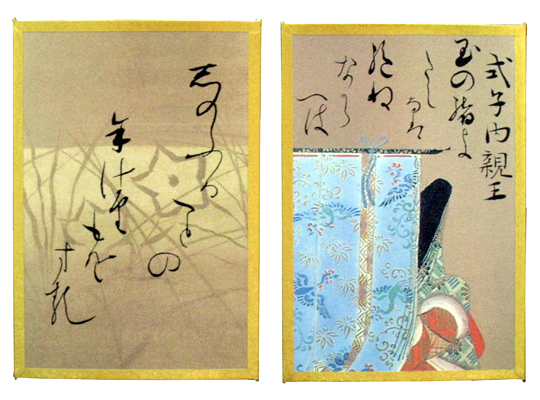 式子内親王
玉の緒よ
たえなは
絶ね
なから
へは
志のふる
ことの
よはり
もそ
する